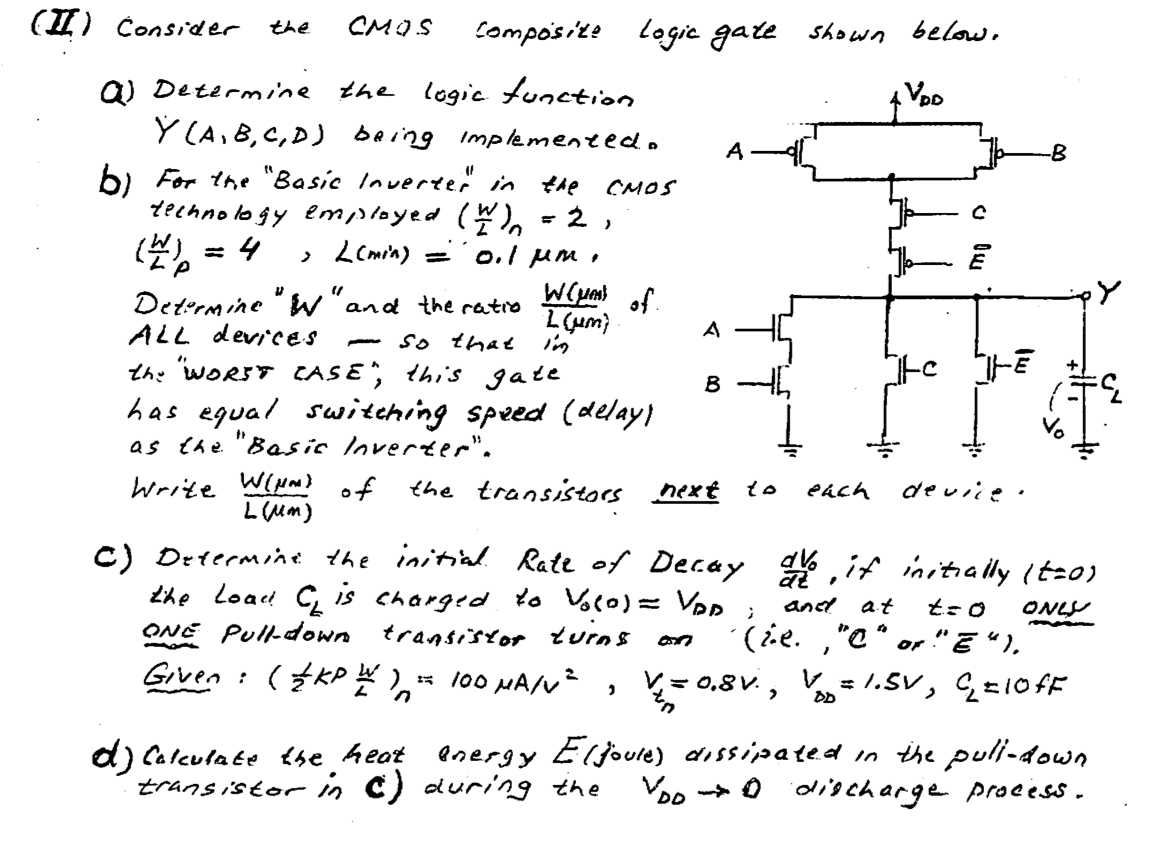 (II) Consider the CMOS Composite Logic gate shown below.
a) Determine the logic function
Y(A,B,C,D) being implemented.
b) For the "Basic Inverter" in the CMOS
technology employed (W/L)n = 2,
(W/L)p = 4 , L(min) = 0.1 μm.
Determine "W" and the ratio W(μm)/L(μm) of
ALL devices – so that in
the "WORST CASE", this gate
has equal switching speed (delay)
as the "Basic Inverter".
Write W(μm)/L(μm) of the transistors next to each device.
VDD
A
B
C
E̅
Y
A
B
C
E̅
+
-
CL
Vo
c) Determine the initial Rate of Decay dVo/dt , if initially (t=0)
the Load CL is charged to Vo(0) = VDD ; and at t=0 ONLY
ONE Pull-down transistor turns on (i.e. , "C" or "E̅").
Given : (½KP W/L)n = 100 μA/V² , Vtn = 0.8V. , VDD = 1.5V , CL = 10fF
d) Calculate the heat energy E(joule) dissipated in the pull-down
transistor in c) during the VDD → 0 discharge process.